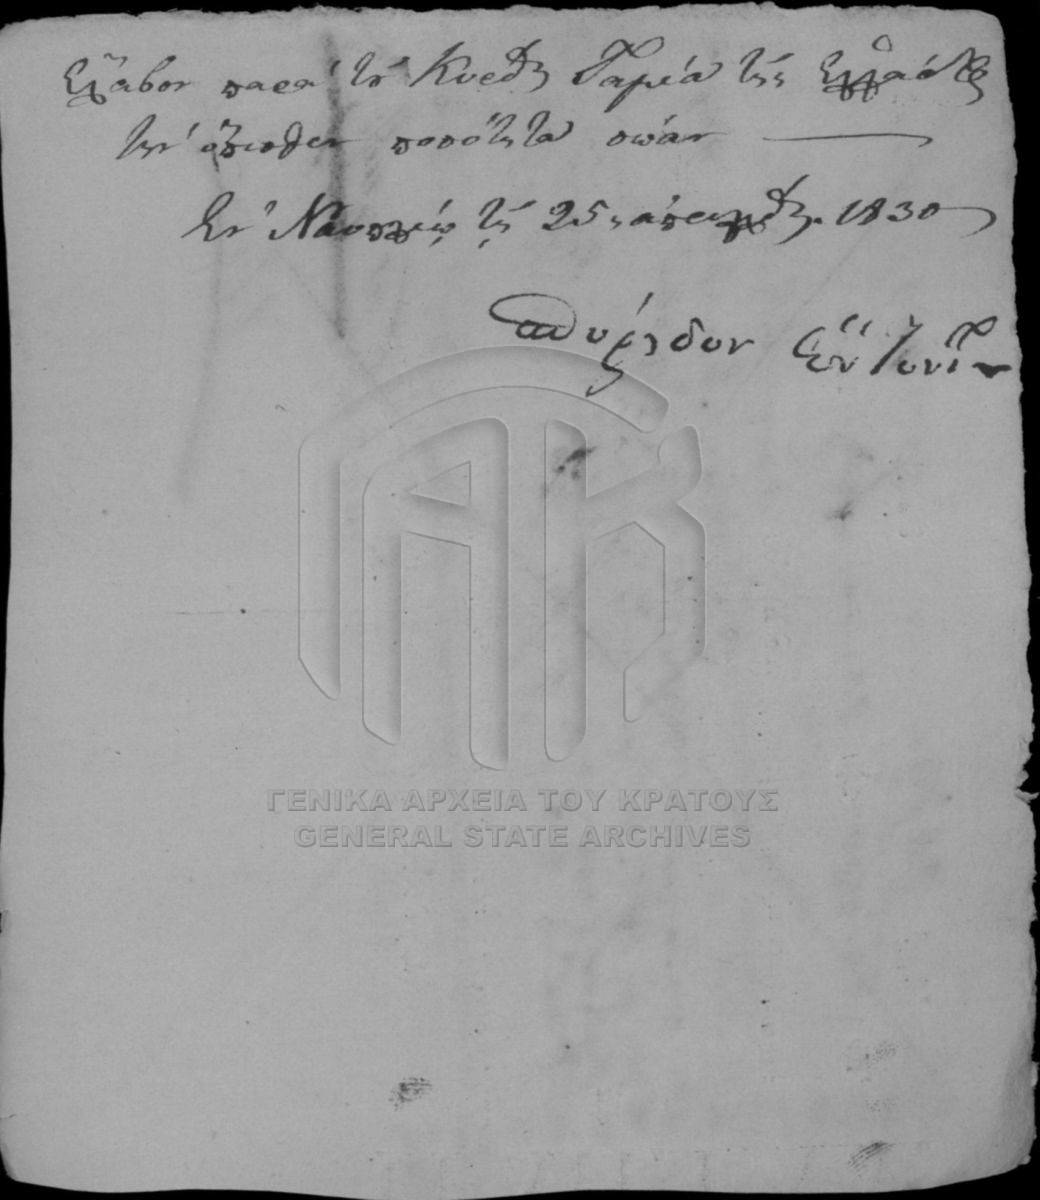 Ἔλαβον παρὰ τοῦ Κυρίου Ταμία τῆς Ἑλλάδος
τὴν ὄπισθεν ποσότητα σώαν
Ἐν Ναυπλίῳ τῇ 25 ἀπριλλίου 1830
ΓΕΝΙΚΑ ΑΡΧΕΙΑ ΤΟΥ ΚΡΑΤΟΥΣ
GENERAL STATE ARCHIVES